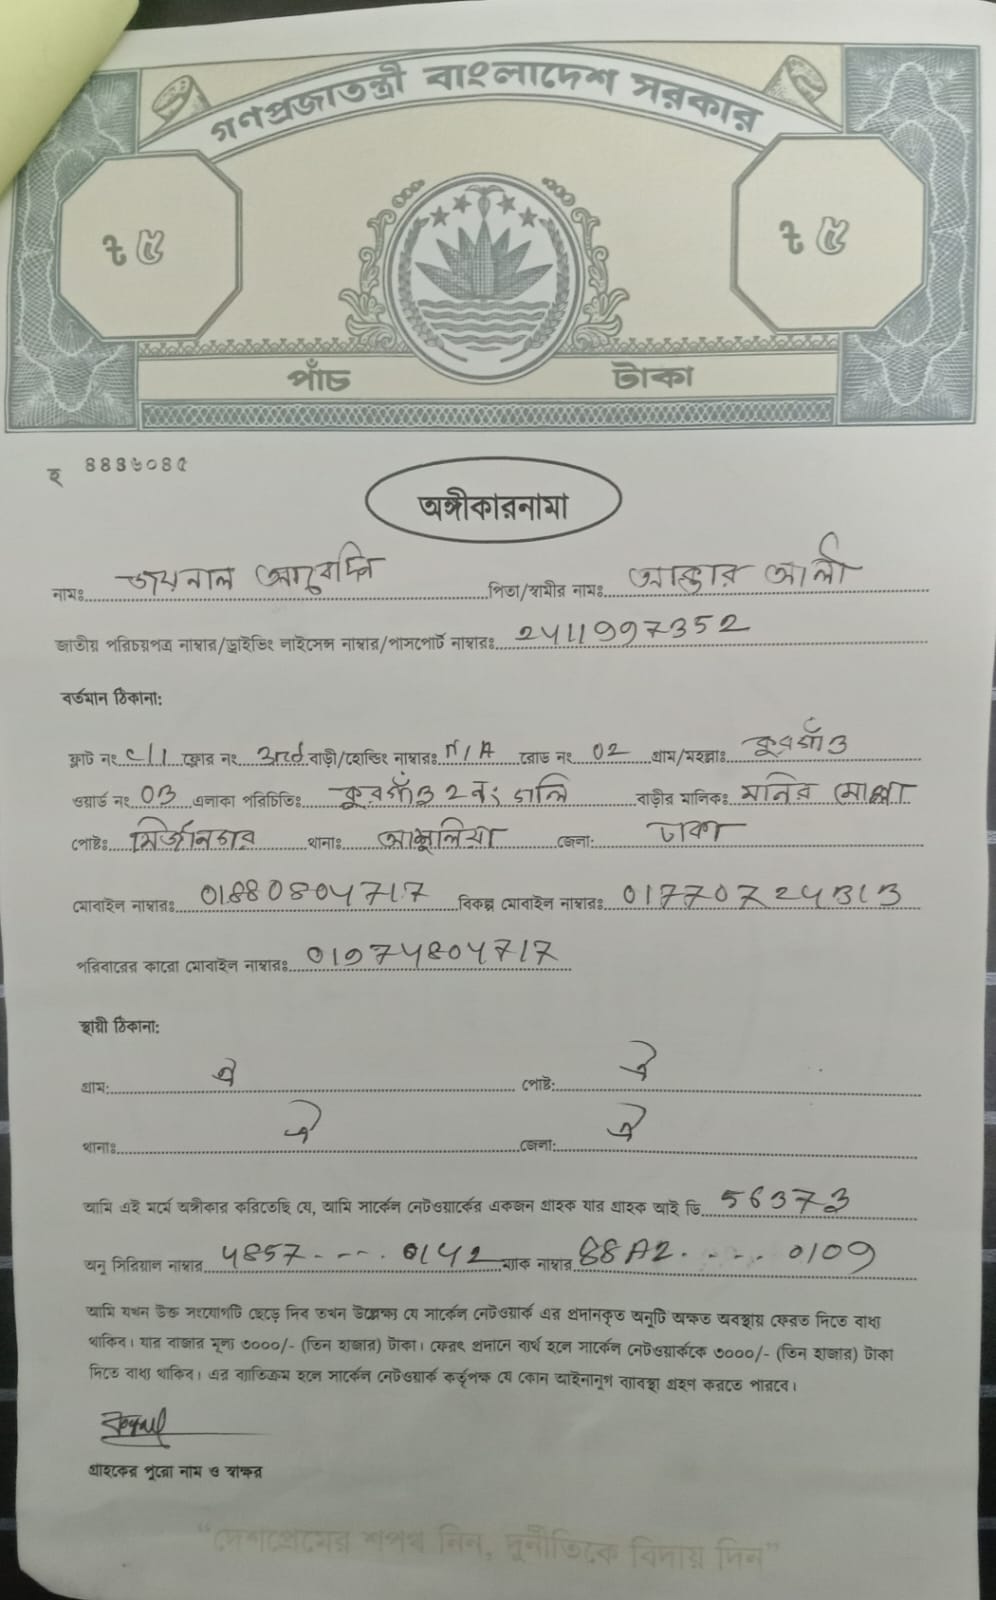 গণপ্রজাতন্ত্রী বাংলাদেশ সরকার
৳ ৫ ৳ ৫
পাঁচ টাকা
অঙ্গীকারনামা
নামঃ জয়নাল আবেদিন পিতা/স্বামীর নামঃ আক্তার আলী
জাতীয় পরিচয়পত্র নাম্বার/ড্রাইভিং লাইসেন্স নাম্বার/পাসপোর্ট নাম্বারঃ 2411997352
বর্তমান ঠিকানা:
ফ্লাট নং C/1 ফ্লোর নং 3rd বাড়ী/হোল্ডিং নাম্বারঃ N/A রোড নং 02 গ্রাম/মহল্লাঃ কুরগাঁও
ওয়ার্ড নং 03 এলাকা পরিচিতিঃ কুরগাঁও 2 নং গলি বাড়ীর মালিকঃ মনির মোল্লা
পোষ্টঃ মির্জানগর থানাঃ আশুলিয়া জেলা: ঢাকা
মোবাইল নাম্বারঃ 01880804717 বিকল্প মোবাইল নাম্বারঃ 01770724313
পরিবারের কারো মোবাইল নাম্বারঃ 01974804717
স্থায়ী ঠিকানা:
গ্রাম: ঐ পোষ্ট: ঐ
থানাঃ ঐ জেলা: ঐ
আমি এই মর্মে অঙ্গীকার করিতেছি যে, আমি সার্কেল নেটওয়ার্কের একজন গ্রাহক যার গ্রাহক আই ডি 56373
অনু সিরিয়াল নাম্বার 4857---- 0142 ম্যাক নাম্বার 88A2---- 0109
আমি যখন উক্ত সংযোগটি ছেড়ে দিব তখন উল্লেক্ষ্য যে সার্কেল নেটওয়ার্ক এর প্রদানকৃত অনুটি অক্ষত অবস্থায় ফেরত দিতে বাধ্য
থাকিব। যার বাজার মূল্য ৩০০০/- (তিন হাজার) টাকা। ফেরৎ প্রদানে ব্যর্থ হলে সার্কেল নেটওয়ার্ককে ৩০০০/- (তিন হাজার) টাকা
দিতে বাধ্য থাকিব। এর ব্যতিক্রম হলে সার্কেল নেটওয়ার্ক কর্তৃপক্ষ যে কোন আইনানুগ ব্যাবস্থা গ্রহণ করতে পারবে।
গ্রাহকের পুরো নাম ও স্বাক্ষর
"দেশপ্রেমের শপথ নিন, দুর্নীতিকে বিদায় দিন"